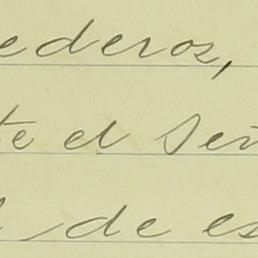 ederos,
te el Señ
de es